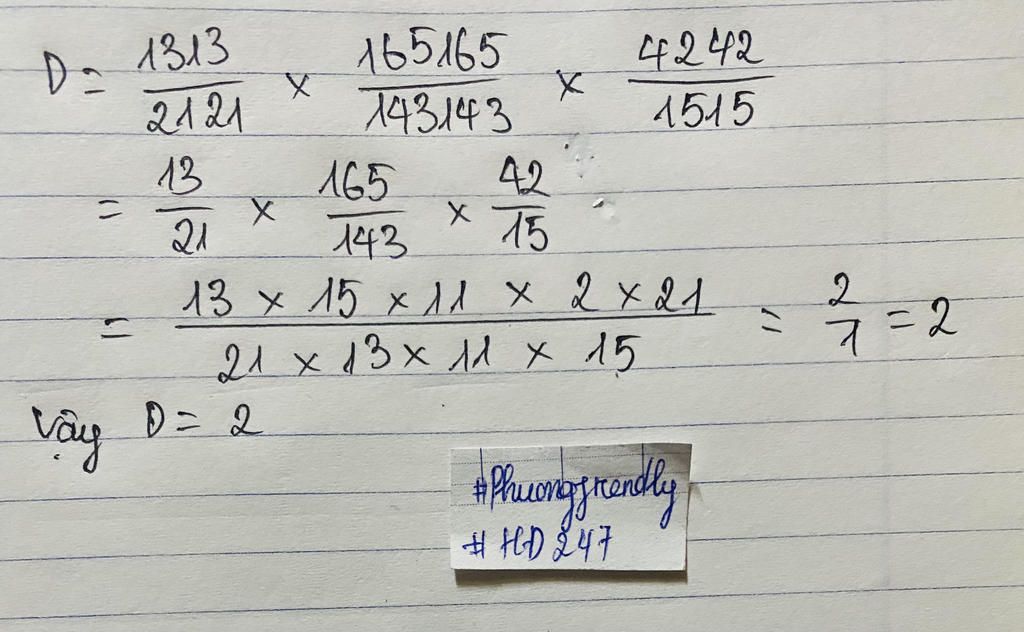 D = 1313/2121 × 165165/143143 × 4242/1515
= 13/21 × 165/143 × 42/15
= 13 × 15 × 11 × 2 × 21 / 21 × 13 × 11 × 15 = 2/1 = 2
Vậy D = 2
#Phuongfrendly
#HD247